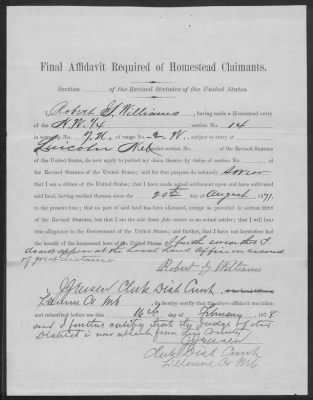 Final Affidavit Required of Homestead Claimants.
Section of the Revised Statutes of the United States.
I, Robert G. Williams, having made a Homestead entry
of the N.W. 1/4 section No. 14
in township No. 7 N, of range No. 2 W., subject to entry at
Lincoln Neb under section No. of the Revised Statutes
of the United States, do now apply to perfect my claim thereto by virtue of section No.
of the Revised Statutes of the United States; and for that purpose do solemnly
that I am a citizen of the United States; that I have made actual settlement upon and have cultivated
said land, having resided thereon since the 20th day of August, 1871
to the present time; that no part of said land has been alienated, except as provided in section 2288
of the Revised Statutes, but that I am the sole bona fide owner as an actual settler; that I will bear
true allegiance to the Government of the United States; and further, that I have not heretofore had
the benefit of the homestead laws of the United States. I further swear that I
do not appear at the local Land Office on account
of great distance
Robert G. Williams
I, Clerk Dist Court
do hereby certify that the above affidavit was taken
and subscribed before me this 16th day of February, 1878
and I further certify that the Judge of this
District is now absent from this County
Clerk Dist Court